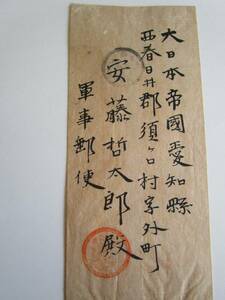 大日本帝國愛知縣
西春日井郡須ヶ口村字外町
安藤哲太郎殿
軍事郵便